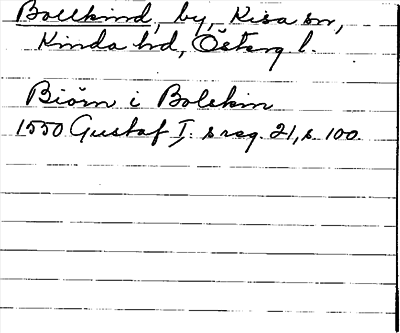 Bollkind, by, Kisa sn,
Kinda hd, Österg l.
Biörn i Bolekin
1550 Gustaf I. s reg. 21, s. 100.